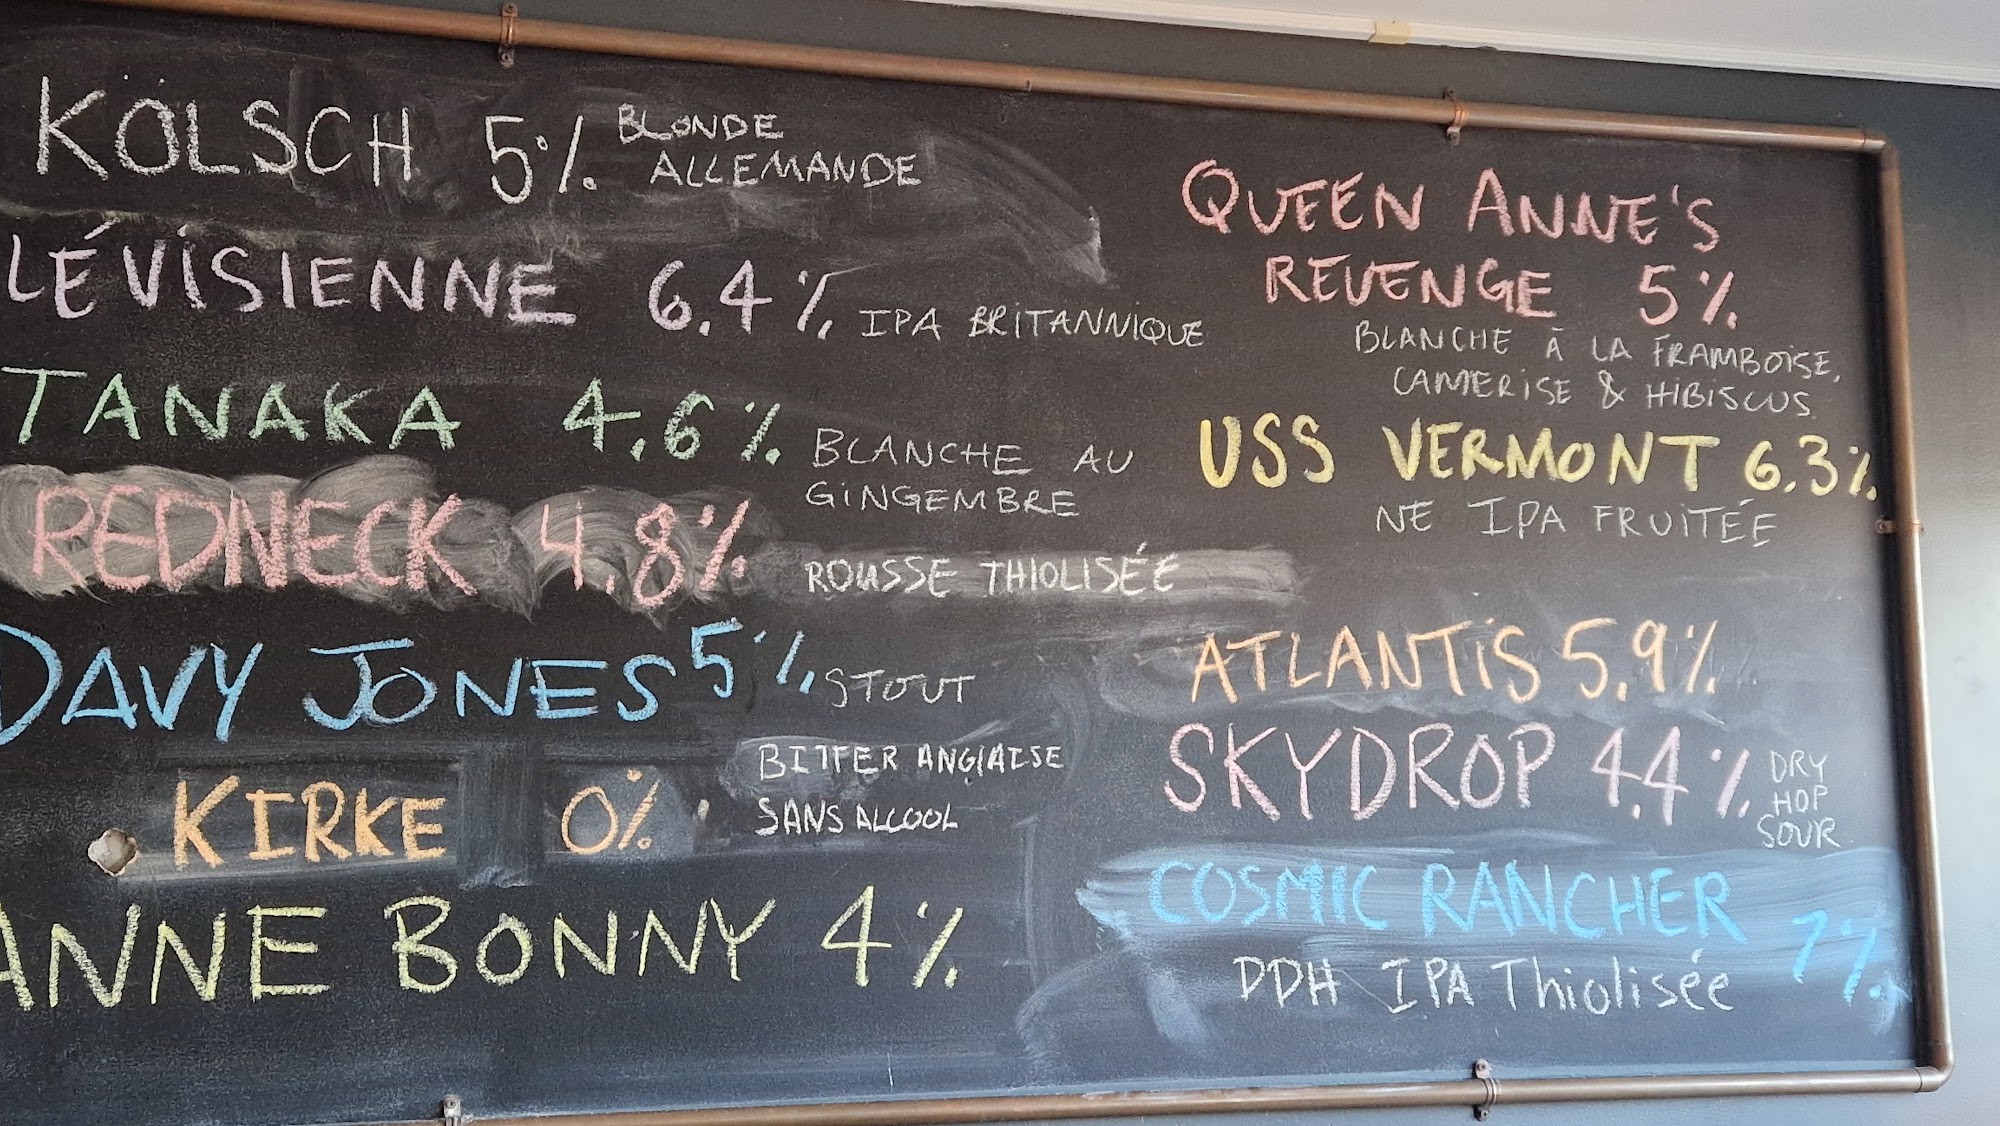 KÖLSCH 5% BLONDE
ALLEMANDE
LÉVISIENNE 6.4% IPA BRITANNIQUE
TANAKA 4.6% BLANCHE AU
GINGEMBRE
REDNECK 4.8% ROUSSE THIOLISÉE
DAVY JONES 5% STOUT
KIRKE 0% BITTER ANGLAISE
SANS ALCOOL
ANNE BONNY 4%
QUEEN ANNE'S
REVENGE 5%
BLANCHE À LA FRAMBOISE,
CAMERISE & HIBISCUS
USS VERMONT 6.3%
NE IPA FRUITÉE
ATLANTIS 5.9%
SKYDROP 4.4% DRY
HOP
SOUR
COSMIC RANCHER 7%
DDH IPA Thiolisée